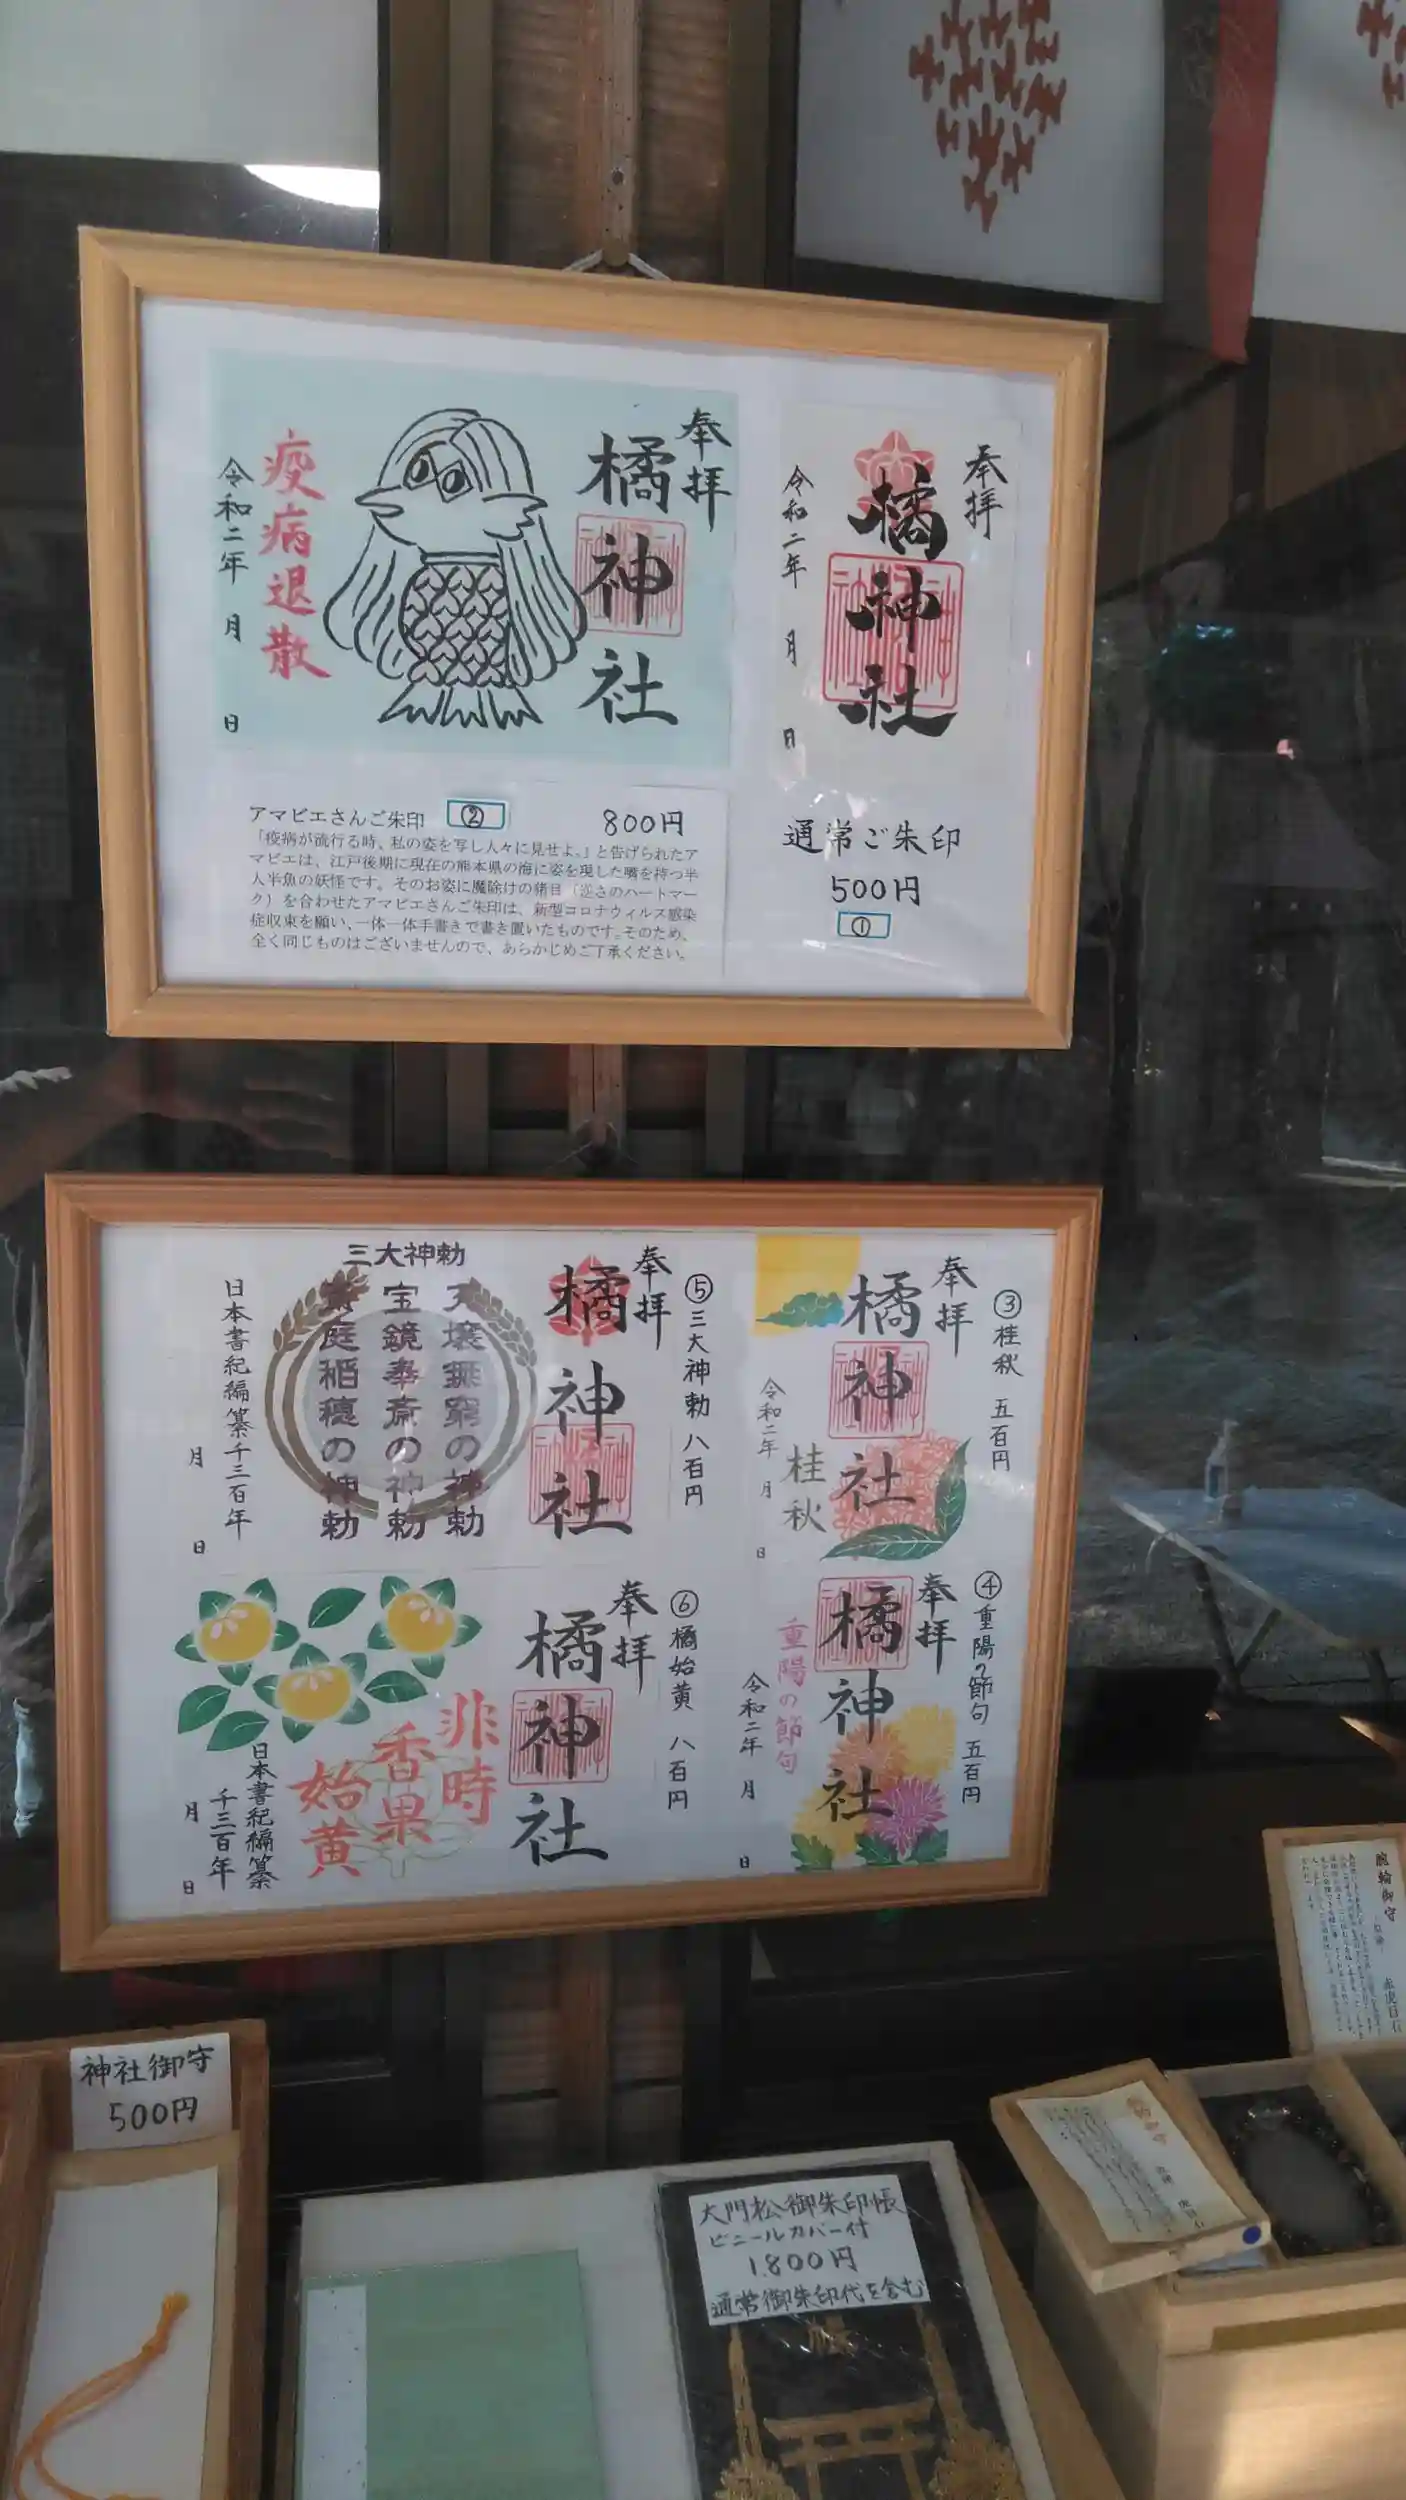 奉拝
橘神社
疫病退散
令和二年 月 日
アマビエさんご朱印 ② 800円
「疫病が流行る時、私の姿を写し人々に見せよ。」と告げられたア
マビエは、江戸後期に現在の熊本県の海に姿を現した嘴を持つ半
人半魚の妖怪です。そのお姿に魔除けの猪目（逆さのハートマー
ク）を合わせたアマビエさんご朱印は、新型コロナウィルス感染
症収束を願い、一体一体手書きで書き置いたものです。そのため、
全く同じものはございませんので、あらかじめご了承ください。
奉拝
橘神社
令和二年 月 日
通常ご朱印
500円
①
③桂秋 五百円
奉拝
橘神社
桂秋
令和二年 月 日
④重陽の節句 五百円
奉拝
橘神社
重陽の節句
令和二年 月 日
⑤三大神勅 八百円
奉拝
橘神社
三大神勅
天壌無窮の神勅
宝鏡奉斎の神勅
斎庭稲穂の神勅
日本書紀編纂千三百年
月 日
⑥橘始黄 八百円
奉拝
橘神社
非時
香果
始黄
日本書紀編纂
千三百年
月 日
神社御守
500円
大門松御朱印帳
ビニールカバー付
1,800円
通常御朱印代を含む
腕輪御守
赤虎目石